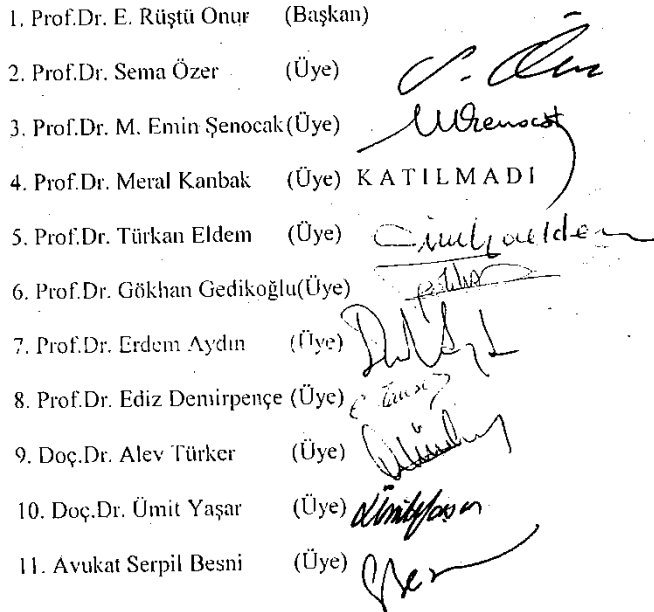 1. Prof.Dr. E. Rüştü Onur (Başkan)
2. Prof.Dr. Sema Özer (Üye)
3. Prof.Dr. M. Emin Şenocak(Üye)
4. Prof.Dr. Meral Kanbak (Üye) KATILMADI
5. Prof.Dr. Türkan Eldem (Üye)
6. Prof.Dr. Gökhan Gedikoğlu(Üye)
7. Prof.Dr. Erdem Aydın (Üye)
8. Prof.Dr. Ediz Demirpençe (Üye)
9. Doç.Dr. Alev Türker (Üye)
10. Doç.Dr. Ümit Yaşar (Üye)
11. Avukat Serpil Besni (Üye)